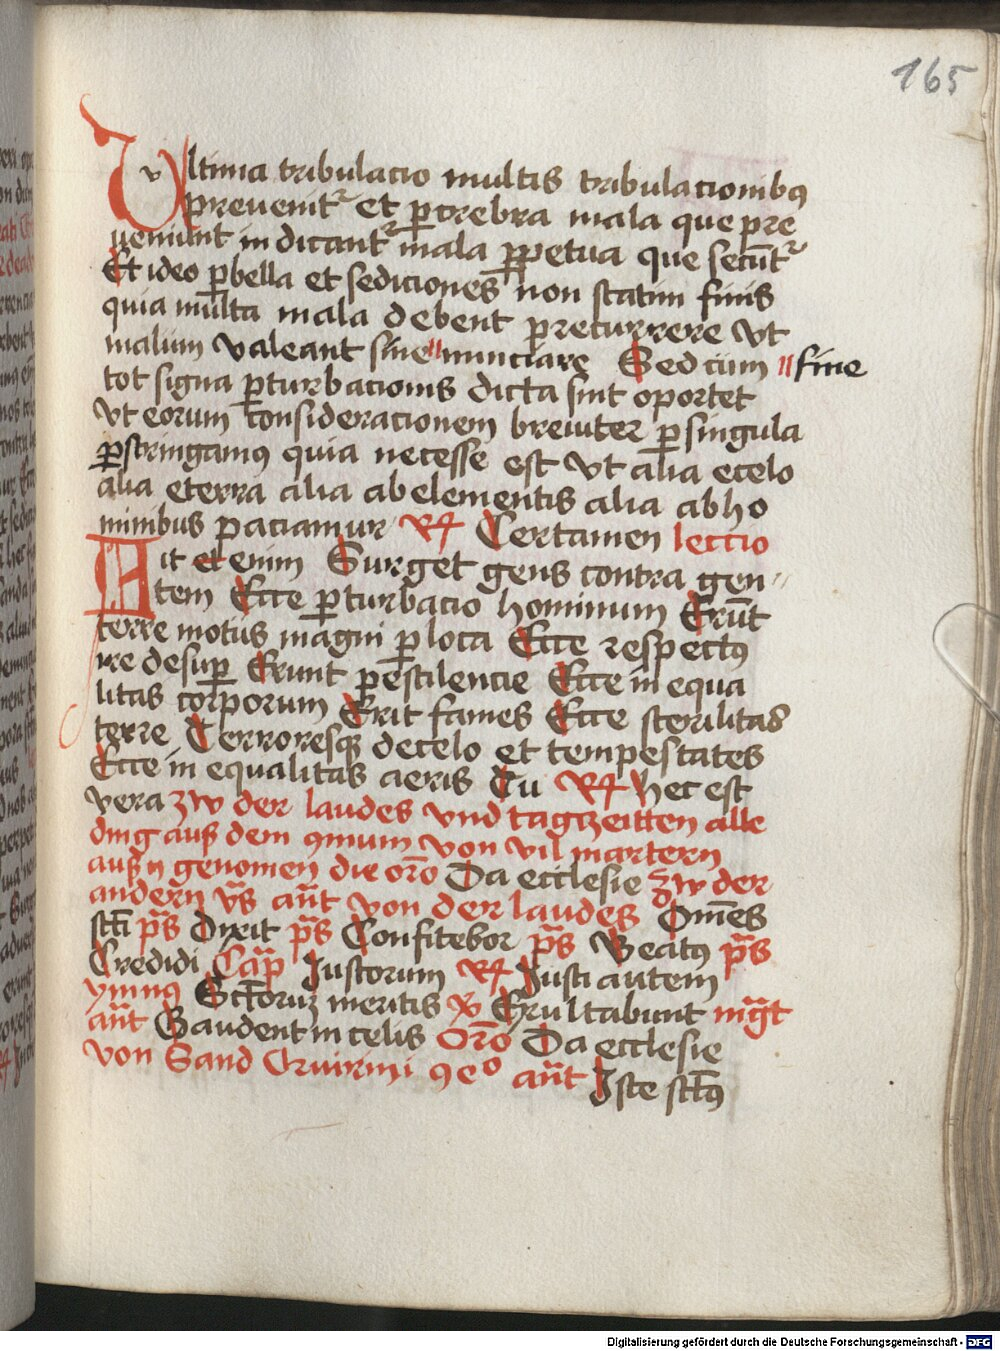 165
Vltima tribulacio multis tribulacionibꝯ
preuenitᷣ et ꝑcrebra mala que pre
ueniunt in dicantᷣ mala ꝑpetua que secūtᷣ
Et ideo ꝑbella et sediciones non statim finis
quia multa mala debent precurrere vt
malum valeant sine〃nunciare Sed cum 〃fine
tot signa ꝑturbacionis dicta sint oportet
vt eorum consideracionem breuiter ꝑ singula
ꝑstringamꝯ quia necesse est vt alia ecelo
alia eterra alia abelementis alia abho
minibus paciamur ℟ Certamen leccio
Ait et enim Surget gens contra gen〃
tem Ecce ꝑturbacio hominum Erūt
terre motus magni ꝑ loca Ecce respectꝯ
ire desuꝑ Erunt pestilencie Ecce in equa
litas corporum Erit fames Ecce sterilitas
terre Terroresqꝫ decelo et tempestates
Ecce in equalitas aeris Tu ℟ Hec est
vera zw der laudes vnd tagzeitten alle
ding auß dem ꝯmum von vil martern
auß genomen die oro̅ Da ecclesie zw der
andern vs̄ an̄t von der laudes Om̄es
sc̄ti ps̄ Dixit ps̄ Confitebor ps̄ Beatꝯ ps̄
Credidi Cap̄ Iustorum ℟ Iusti autem
ymnꝯ Sc̄toruꝫ meritis ℣ Exultabunt mḡt
an̄t Gaudent in celis Oro̅ Da ecclesie
von Sand Qruirini ꝯeo an̄t Iste sc̄tꝯ
Digitalisierung gefördert durch die Deutsche Forschungsgemeinschaft - DFG